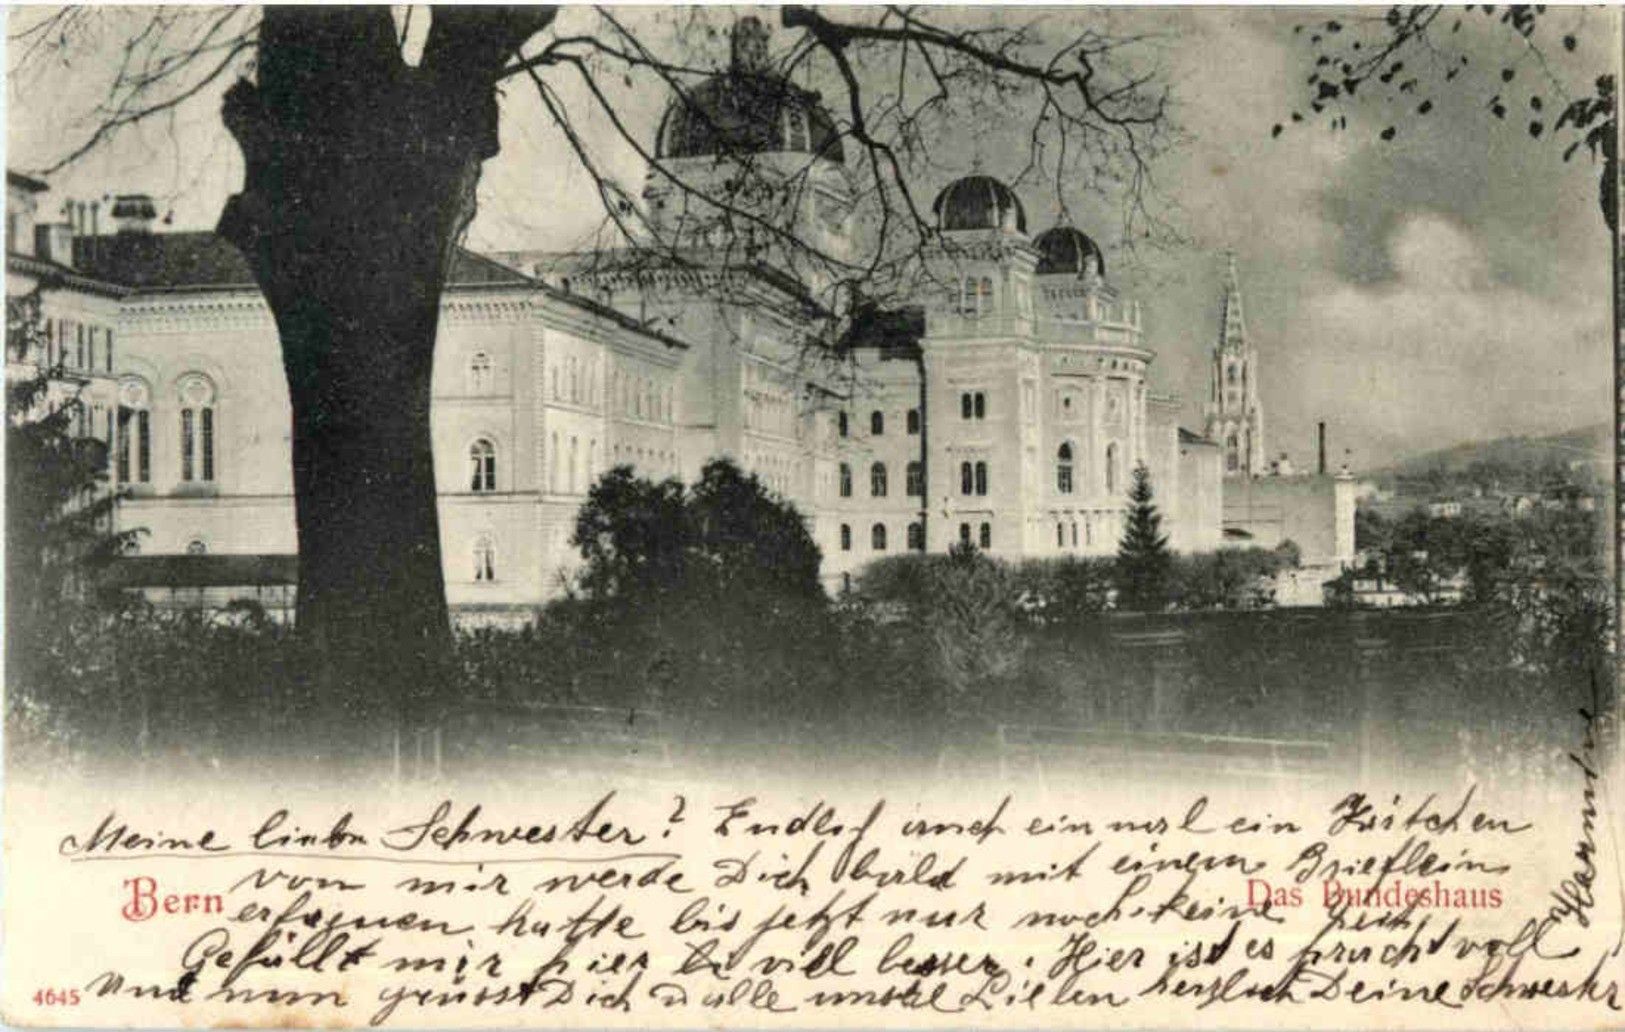 Meine liebe Schwester! Endlich auch einmal ein Zeitchen
von mir werde Dich bald mit einem Brieflein
Bern
Das Bundeshaus
erfreuen hatte bis jetzt nur noch keine Zeit
Gefällt mir hier viel besser. Hier ist es prachtvoll
4645
Und nun grüsst Dich u alle unsere Lieben herzlich Deine Schwester